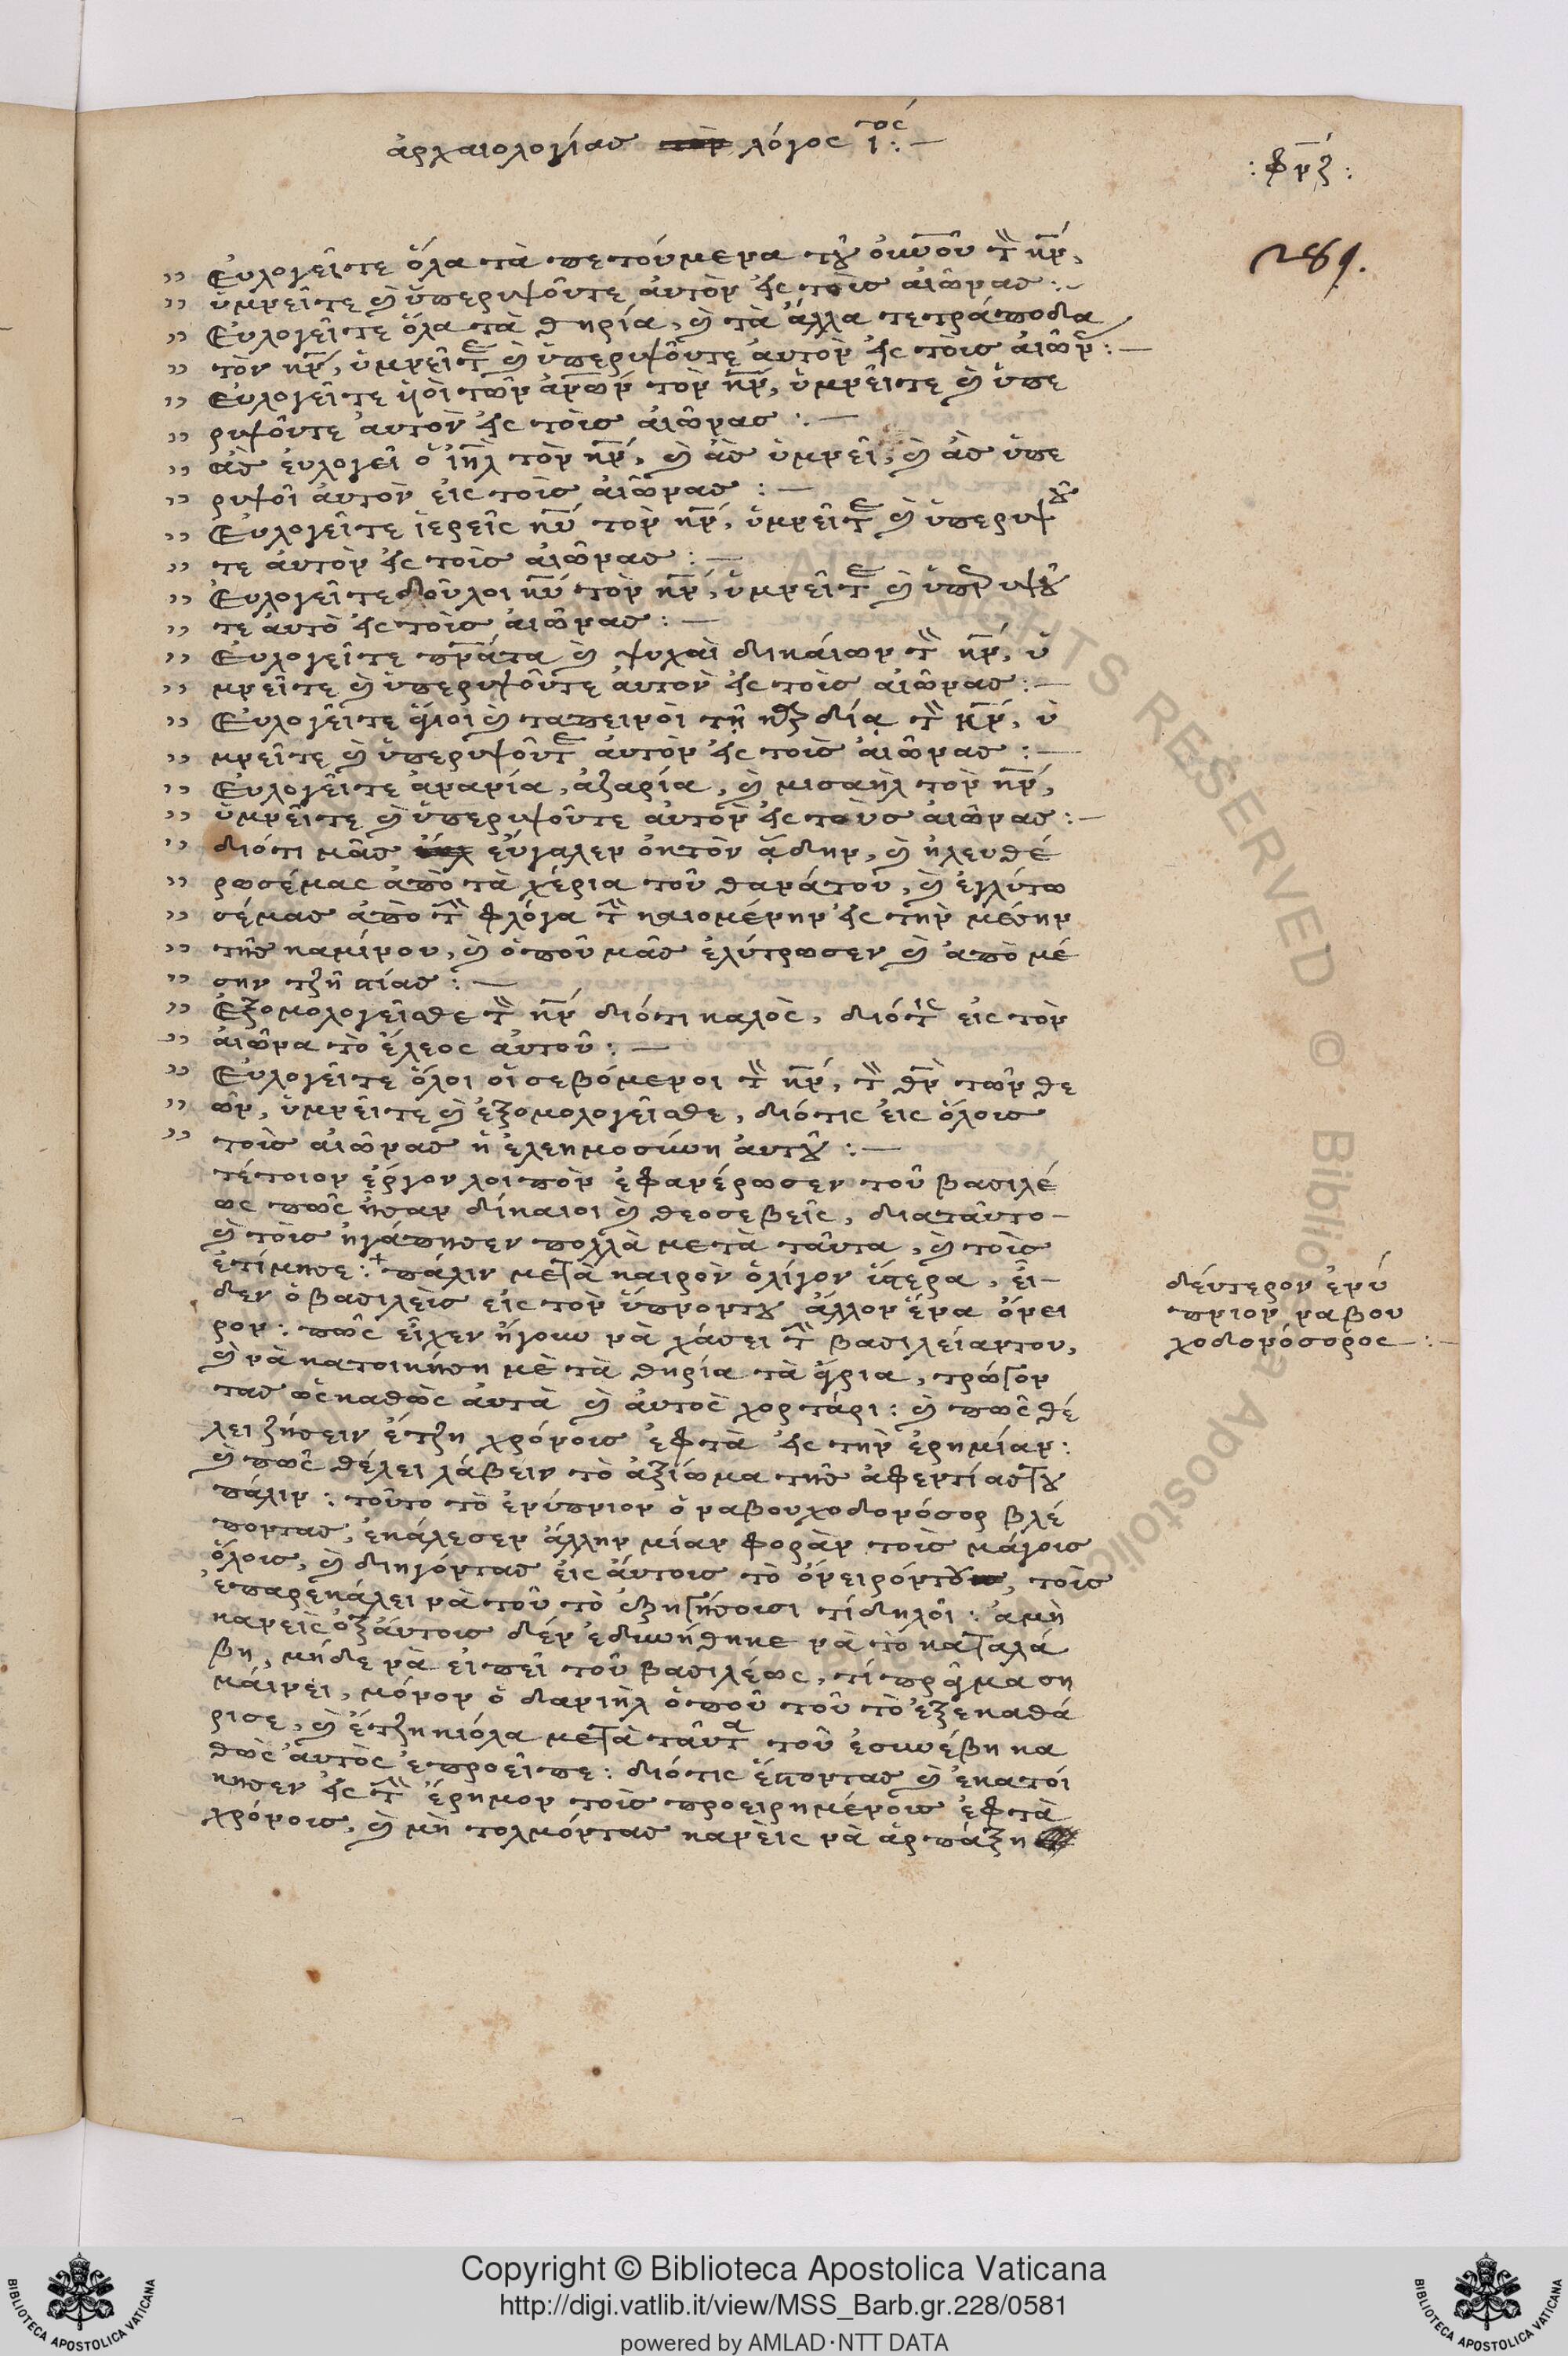 ἀρχαιολογίας λόγος ι̅ος :—
: φρζ :
289.
Εὐλογεῖτε ὅλα τὰ πετούμενα τοῦ οὐ̅νοῦ τὸ̅ κ̅ν,
ὑμνεῖτε καὶ ὑπερυψοῦτε αὐτὸν εἰς τοὺς αἰῶνας :—
Εὐλογεῖτε ὅλα τὰ θηρία, καὶ τὰ ἄλλα τετράποδα
τὸν κ̅ν, ὑμνεῖτε καὶ ὑπερυψοῦτε αὐτὸν εἰς τοὺς αἰῶν :—
Εὐλογεῖτε υἱοὶ τῶν ἀν̅ων τὸν κ̅ν, ὑμνεῖτε καὶ ὑπε
ρυψοῦτε αὐτὸν εἰς τοὺς αἰῶνας :—
ἂς εὐλογεῖ ὁ ἰη̅λ τὸν κ̅ν, καὶ ἂς ὑμνεῖ, καὶ ἂς ὑπε
ρυψοῖ αὐτὸν εἰς τοὺς αἰῶνας :—
Εὐλογεῖτε ἱερεῖς κ̅υ τὸν κ̅ν, ὑμνεῖτε καὶ ὑπερυψοῦ
τε αὐτὸν εἰς τοὺς αἰῶνας :—
Εὐλογεῖτε δοῦλοι κ̅υ τὸν κ̅ν, ὑμνεῖτε καὶ ὑπερυψοῦ
τε αὐτὸ εἰς τοὺς αἰῶνας :—
Εὐλογεῖτε πν̅ατα καὶ ψυχαὶ δικαίων τὸ̅ κ̅ν, ὑ
μνεῖτε καὶ ὑπερυψοῦτε αὐτὸν εἰς τοὺς αἰῶνας :—
Εὐλογεῖτε ἅγιοι καὶ ταπεινοὶ τῇ καρδίᾳ τὸ̅ κ̅ν, ὑ
μνεῖτε καὶ ὑπερυψοῦτε αὐτὸν εἰς τοὺς αἰῶνας :—
Εὐλογεῖτε ἀνανία, ἀζαρία, καὶ μισαὴλ τὸν κ̅ν,
ὑμνεῖτε καὶ ὑπερυψοῦτε αὐτὸν εἰς τοὺς αἰῶνας :—
διότι μᾶς εὔγαλεν ὀκτὸν ᾅδην, καὶ ἠλευθέ
ρωσέμας ἀπὸ τὰ χέρια τοῦ θανάτου, καὶ ἐγλύτω
σέμας ἀπὸ τὴ̅ φλόγα τὴ̅ καιομένην εἰς τὴν μέσην
τῆς καμίνου, καὶ ὁποῦ μᾶς ἐλύτρωσεν καὶ ἀπὸ μέ
σην τζῆ πίας :—
Ἐξομολογεῖσθε τὸ̅ κ̅ν διότι καλὸς, διότις εἰς τὸν
αἰῶνα τὸ ἔλεος αὐτοῦ :—
Εὐλογεῖτε ὅλοι οἱ σεβόμενοι τὸ̅ κ̅ν, τὸ̅ θ̅ν τῶν θε
ῶν, ὑμνεῖτε καὶ ἐξομολογεῖσθε, διότις εἰς ὅλους
τοὺς αἰῶνας ἡ ἐλεημοσύνη αὐτοῦ :—
τέτοιον ἔργον λοιπὸν ἐφανέρωσεν τοῦ βασιλέ
ως πῶς ἦσαν δίκαιοι καὶ θεοσεβεῖς, διαταῦτο–
καὶ τοὺς ἠγάπησεν πολλὰ μετὰ ταῦτα, καὶ τοὺς
ἐτίμησε :+ πάλιν μετὰ καιρὸν ὀλίγον ὕστερα, εἶ–
δεν ὁ βασιλεὺς εἰς τὸν ὕπνοντου ἄλλον ἕνα ὄνει
ρον : πῶς εἶχεν ἤγουν νὰ χάσει τὴ̅ βασιλείαντου,
καὶ νὰ κατοικήση μὲ τὰ θηρία τὰ ἄγρια, τρώγον
τας ὡς καθὼς αὐτὰ καὶ αὐτὸς χορτάρι : καὶ πῶς θέ
λει ζήσειν ἔτζη χρόνους ἐφτὰ εἰς τὴν ἐρημίαν :
καὶ πῶς θέλει λάβειν τὸ ἀξίωμα τῆς ἀφεντίας του
πάλιν : τοῦτο τὸ ἐνύπνιον ὁ ναβουχοδονόσορ βλέ
ποντας, ἐκάλεσεν ἄλλην μίαν φορὰν τοὺς μάγους
ὅλους, καὶ διηγόντας εἰς αὐτους τὸ ὀνειρόντου, τοὺς
ἐπαρεκάλει νὰ τοῦ τὸ ἐξηγήσουσι τί δηλοῖ : ἀμὴ
κανεὶς ὀξαύτους δὲν ἐδυνήθηκε νὰ τὸ καταλά
βη, μήδε νὰ εἰπεῖ τοῦ βασιλέως, τί πρᾶγμα ση
μαίνει, μόνον ὁ δανιὴλ ὁποῦ τοῦ τὸ ἐξεκαθά
ρισε, καὶ ἔτζηκιόλα μετὰ ταῦτα τοῦ ἐσυνέβη κα
θὼς αὐτὸς ἐπροεῖπε : διότις ἔστοντας καὶ ἐκατοί
κησεν εἰς τὴ̅ ἔρημον τοὺς προειρημένους ἐφτὰ
χρόνους, καὶ μὴ τολμόντας κανεὶς νὰ ἁρπάξη
δεύτερον ἐνύ
πνιον ναβου
χοδονόσορος —:—
Copyright © Biblioteca Apostolica Vaticana
http://digi.vatlib.it/view/MSS_Barb.gr.228/0581
powered by AMLAD·NTT DATA